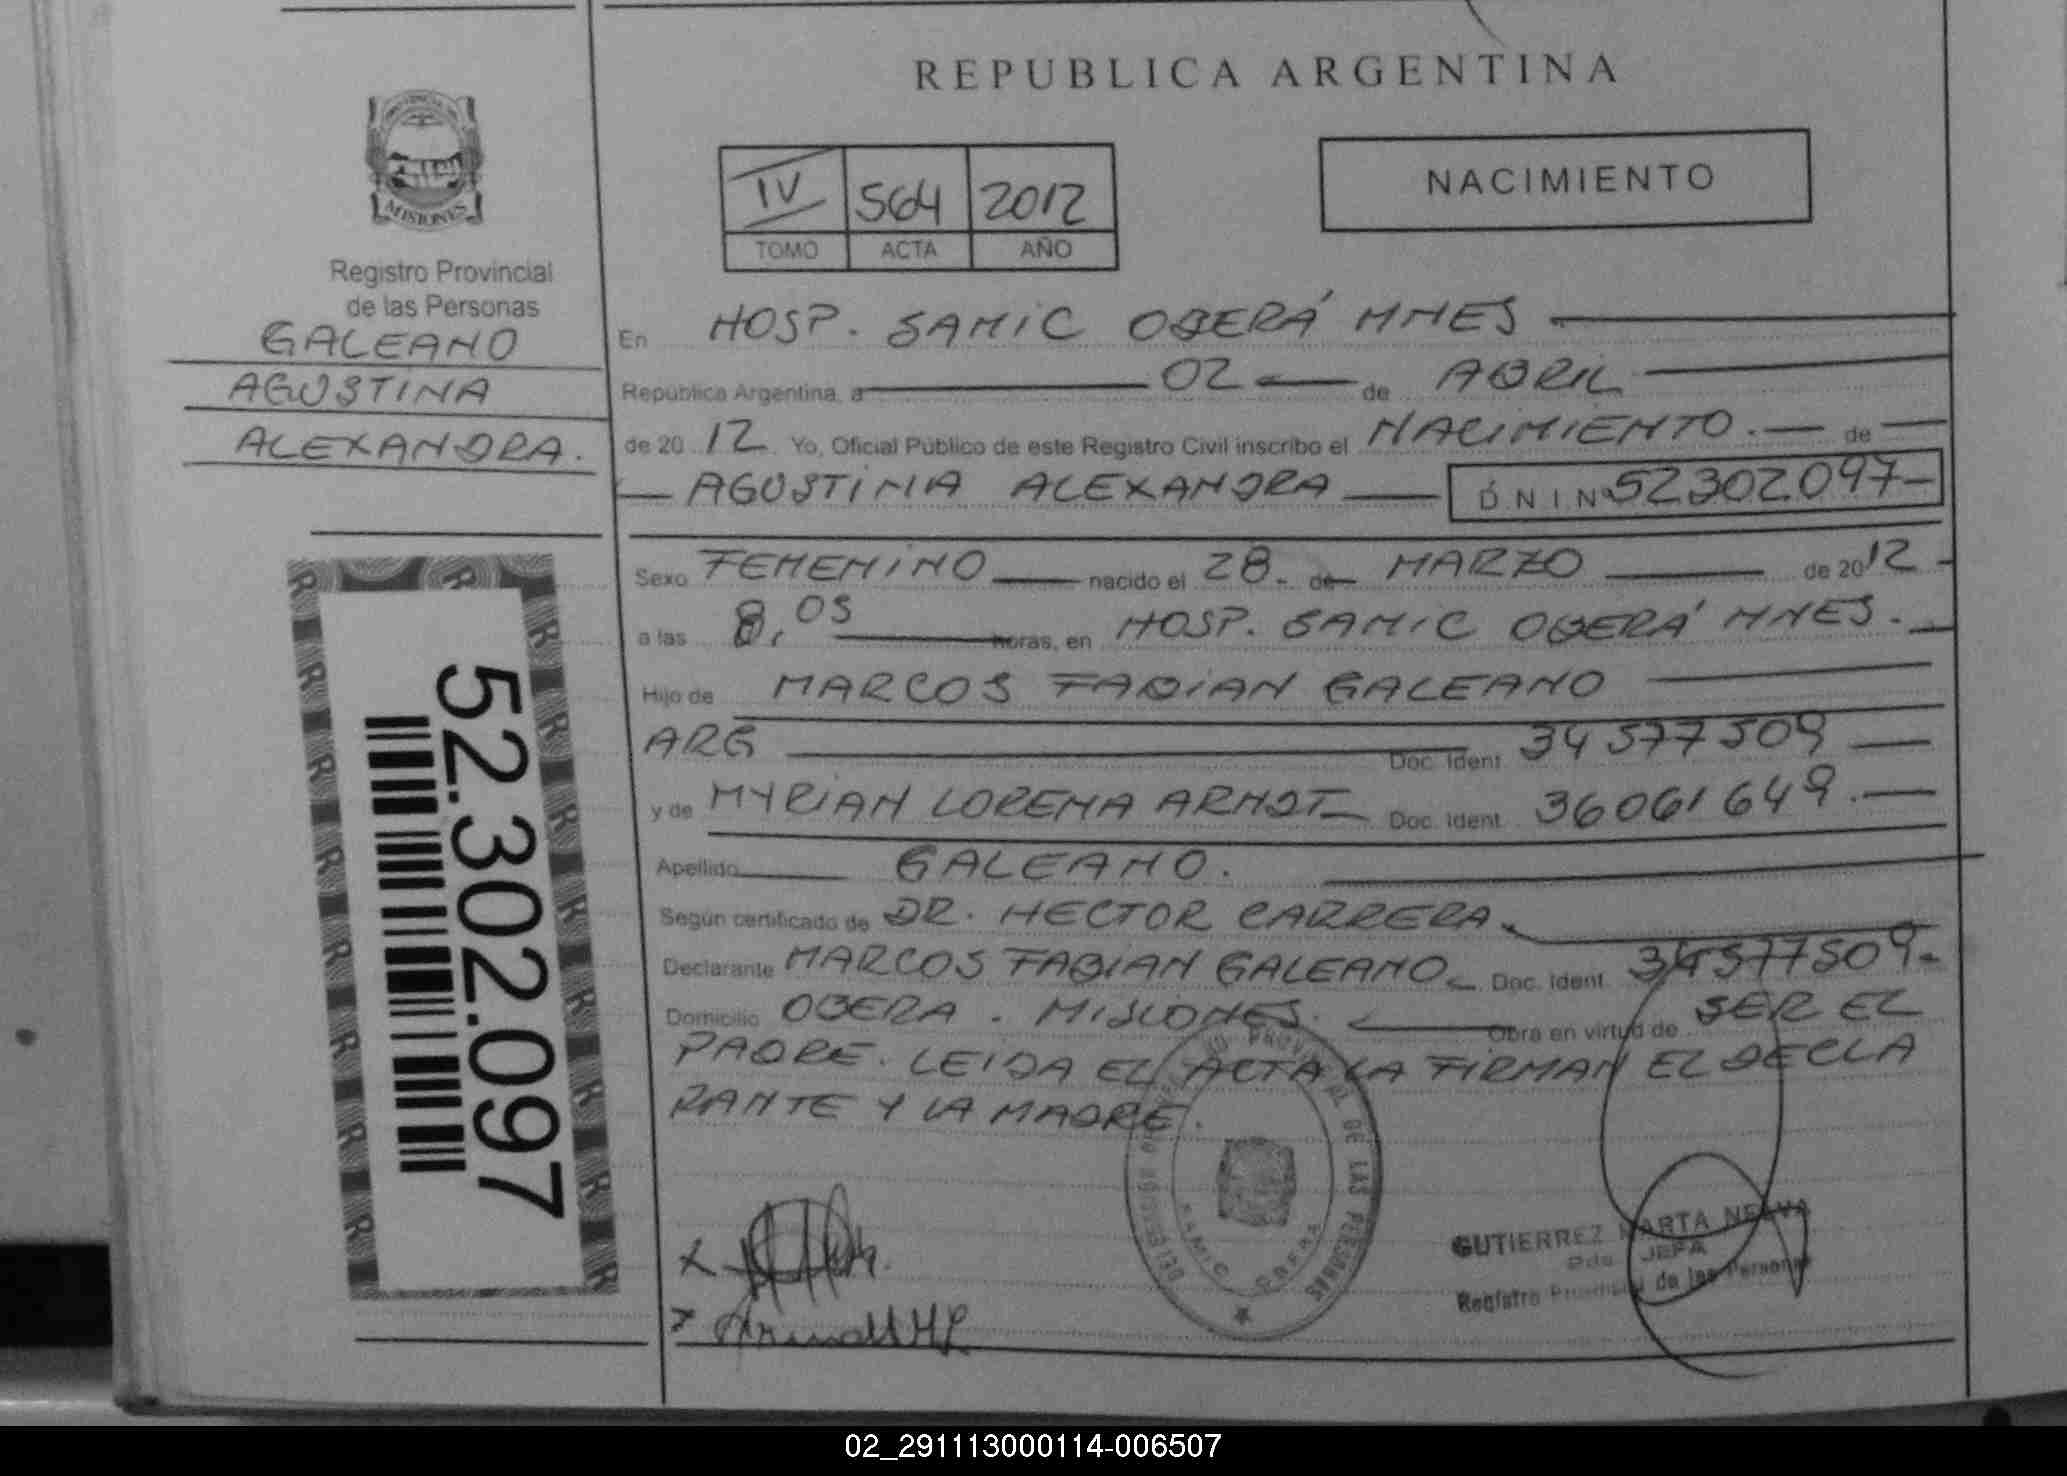 REPUBLICA ARGENTINA
PROVINCIA DE
MISIONES
Registro Provincial
de las Personas
GALEANO
AGUSTINA
ALEXANDRA.
52.302.097
IV 564 2012
TOMO ACTA AÑO
NACIMIENTO
En HOSP. SAMIC OBERÁ MNES
República Argentina, a 02 de ABRIL
de 20 12 Yo, Oficial Público de este Registro Civil inscribo el NACIMIENTO. de
AGUSTINA ALEXANDRA D N I Nº 52302097-
Sexo FEMENINO nacido el 28. de MARZO de 2012
a las 8,05 horas, en HOSP. SAMIC OBERÁ MNES.
Hijo de MARCOS FABIAN GALEANO
ARG Doc. Ident. 34577509
y de MYRIAN LORENA ARNDT Doc. Ident. 36061649.
Apellido GALEANO.
Según certificado de DR. HECTOR CARRERA.
Declarante MARCOS FABIAN GALEANO Doc. Ident. 34577509-
Domicilio OBERA. MISIONES. Obra en virtud de SER EL
PADRE. LEIDA EL ACTA LA FIRMAN EL DECLA
RANTE Y LA MADRE.
PROVINCIAL DE LAS PERSONAS
SAMIC OBERA
GUTIERREZ MARTA NELVA
JEFA
Registro Provincial de las Personas
02_291113000114-006507